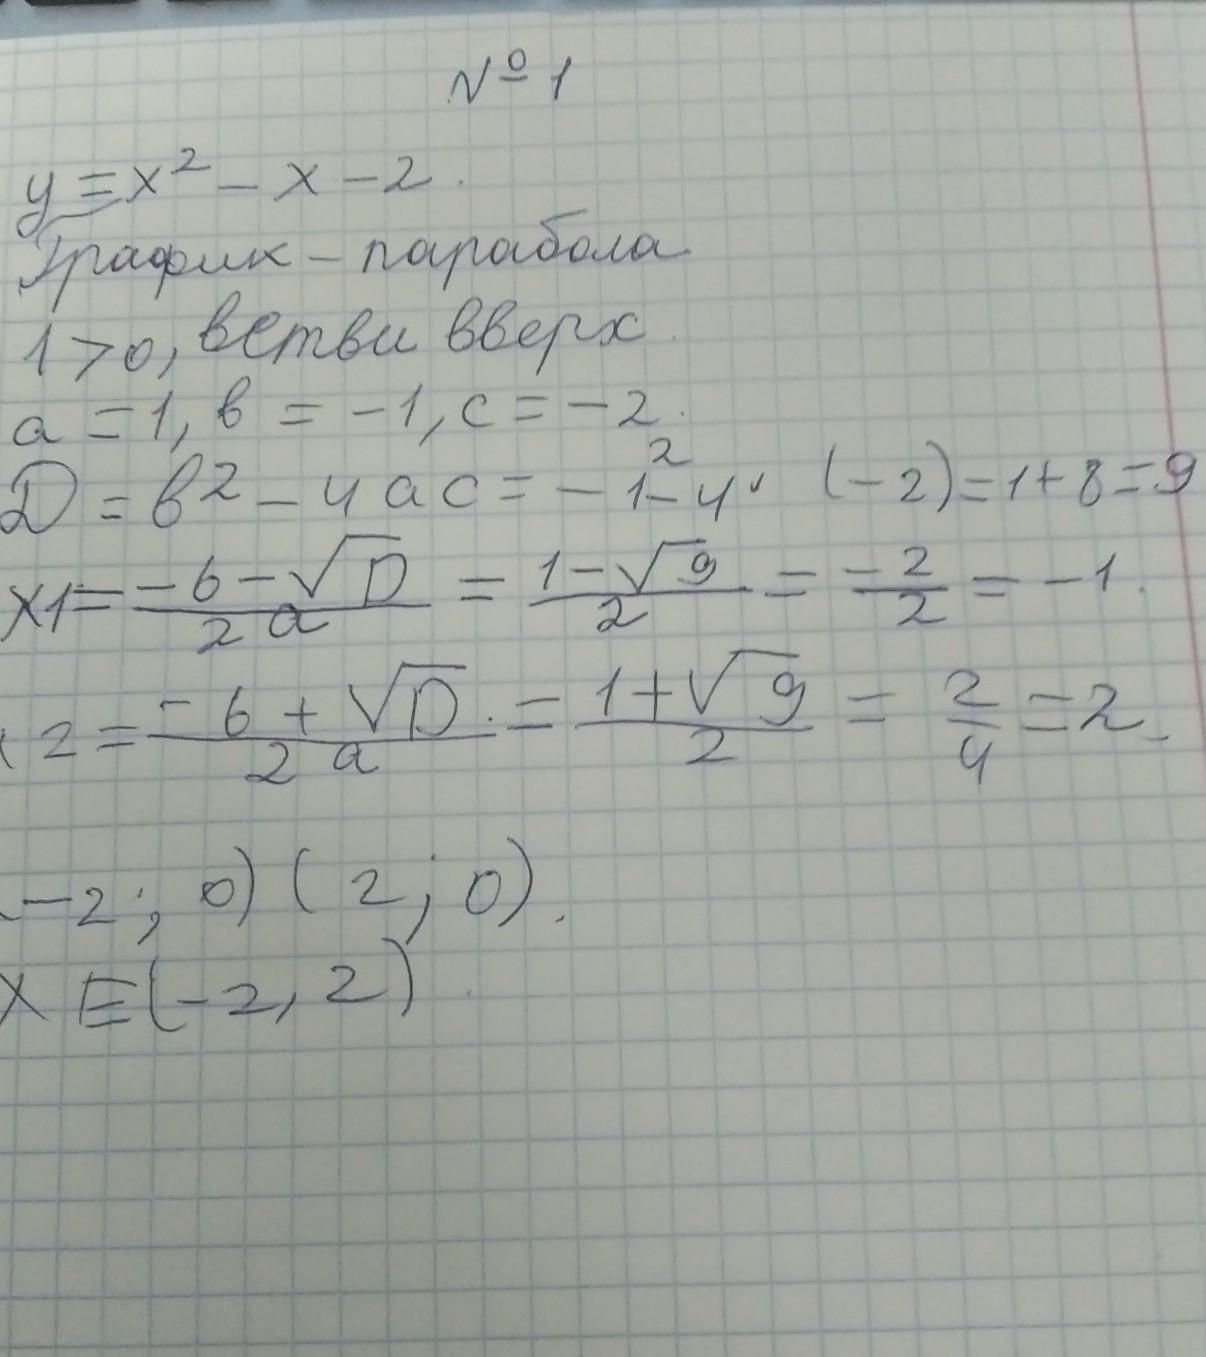 № 1
y = x² - x - 2.
График - парабола
1 > 0, ветви вверх.
a = 1, в = -1, c = -2.
D = в² - 4ac = -1² - 4 · (-2) = 1 + 8 = 9
x1 = (-в - √D)/(2a) = (1 - √9)/2 = (-2)/2 = -1.
x2 = (-в + √D)/(2a) = (1 + √9)/2 = 2/4 = 2.
(-2; 0) (2; 0).
x ∈ (-2, 2).